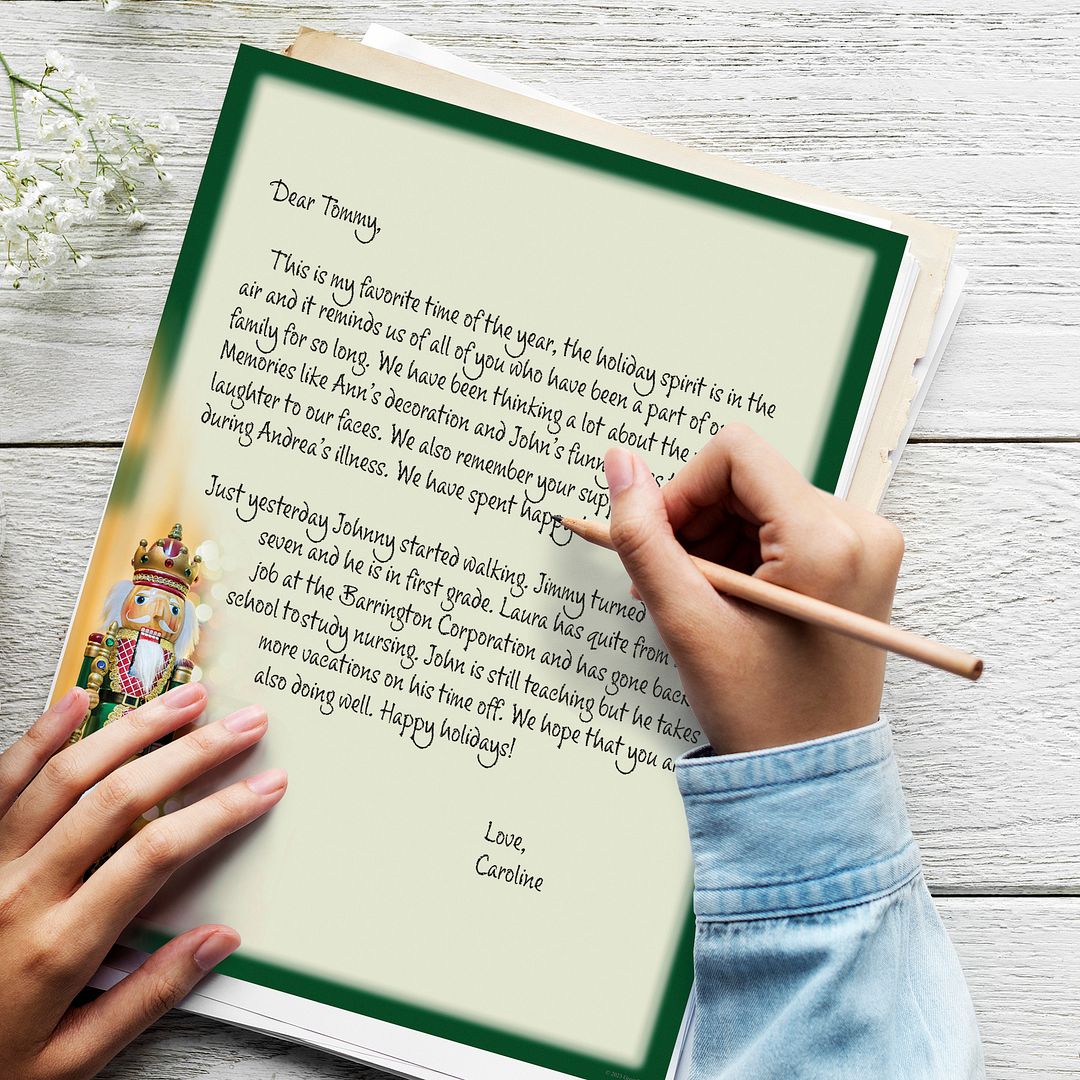 Dear Tommy,
This is my favorite time of the year, the holiday spirit is in the
air and it reminds us of all of you who have been a part of
family for so long. We have been thinking a lot about the
Memories like Ann's decoration and John's funny
laughter to our faces. We also remember your
during Andrea's illness. We have spent happy
Just yesterday Johnny started walking. Jimmy turned
seven and he is in first grade. Laura has quite from
job at the Barrington Corporation and has gone back
school to study nursing. John is still teaching but he takes
more vacations on his time off. We hope that you
also doing well. Happy holidays!
Love,
Caroline